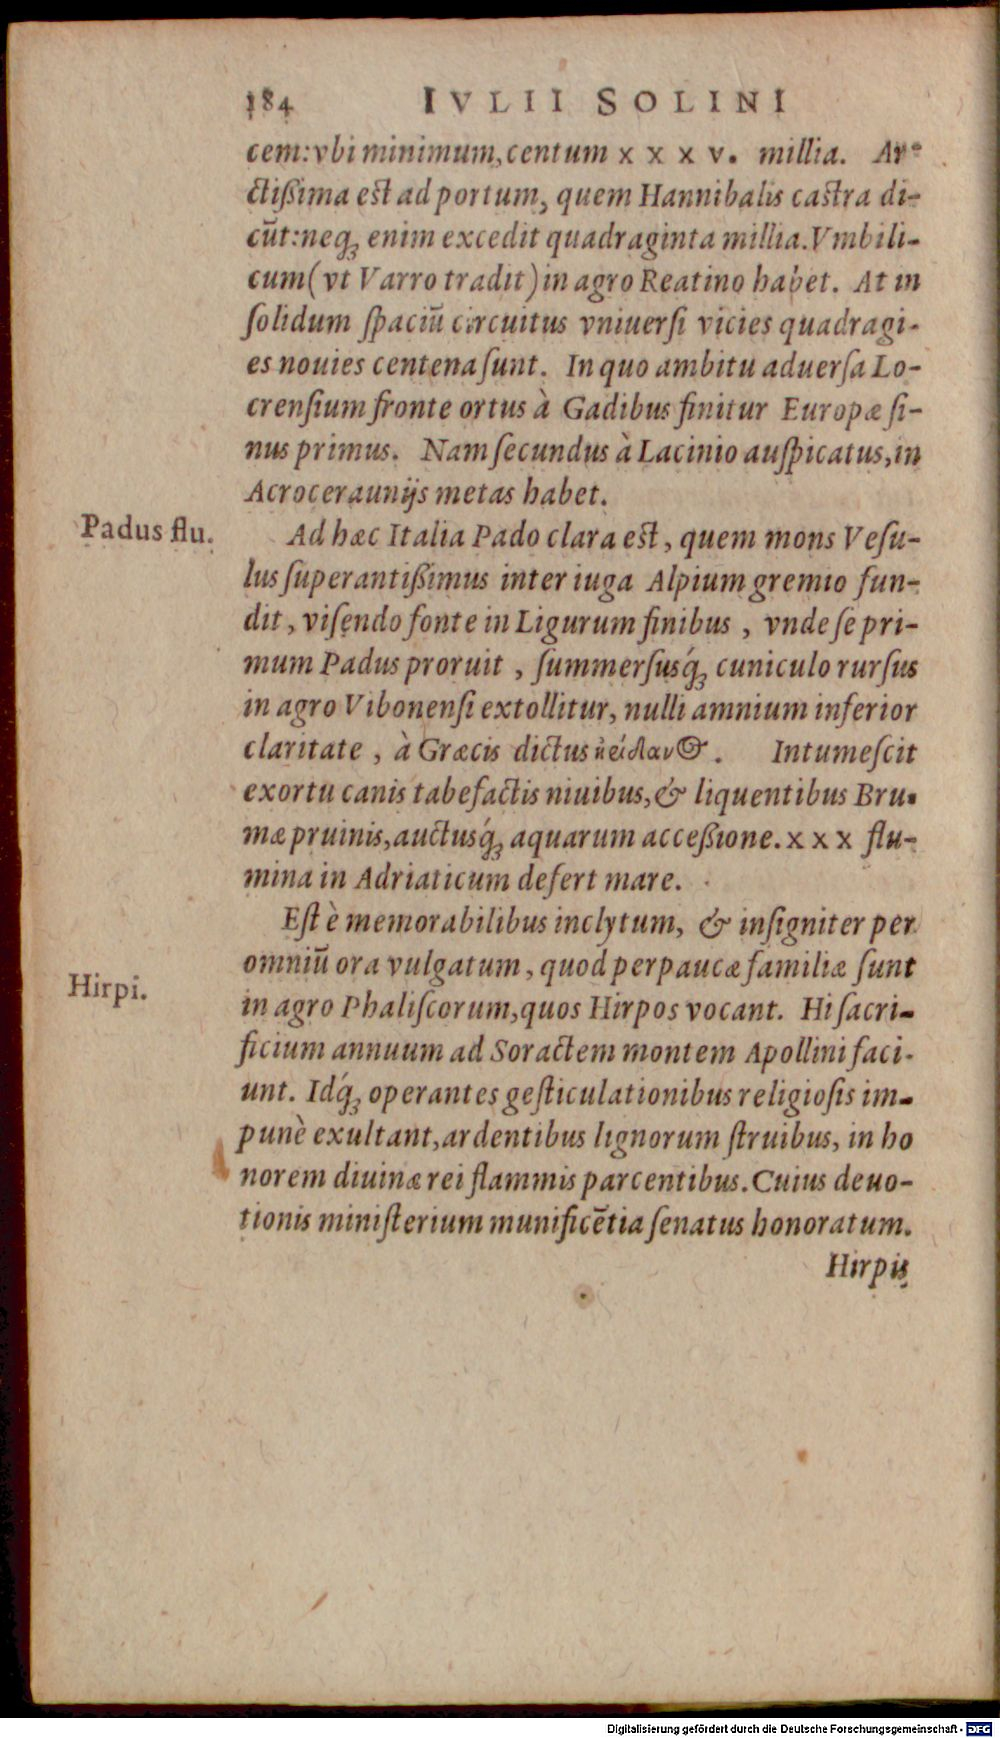 184 IVLII SOLINI
cem: vbi minimum, centum x x x v. millia. Ar-
ctißima est ad portum, quem Hannibalis castra di-
cũt: neq́; enim excedit quadraginta millia. Vmbili-
cum (vt Varro tradit) in agro Reatino habet. At in
ſolidum ſpaciũ circuitus vniuerſi vicies quadragi-
es nouies centena ſunt. In quo ambitu aduerſa Lo-
crenſium fronte ortus à Gadibus finitur Europæ ſi-
nus primus. Nam ſecundus à Lacinio auſpicatus, in
Acroceraunijs metas habet.
Padus flu.
Ad hæc Italia Pado clara est, quem mons Veſu-
lus ſuperantißimus inter iuga Alpium gremio fun-
dit, viſendo fonte in Ligurum finibus, vnde ſe pri-
mum Padus proruit, ſummerſusq́; cuniculo rurſus
in agro Vibonenſi extollitur, nulli amnium inferior
claritate, à Græcis dictus . Intumeſcit
exortu canis tabefactis niuibus, & liquentibus Bru-
mæ pruinis, auctusq́; aquarum acceßione. x x x flu-
mina in Adriaticum defert mare.
Eſt è memorabilibus inclytum, & inſigniter per
omniũ ora vulgatum, quod perpaucæ familiæ ſunt
Hirpi.
in agro Phaliſcorum, quos Hirpos vocant. Hi ſacri-
ficium annuum ad Soractem montem Apollini faci-
unt. Idq́; operantes geſticulationibus religioſis im-
punè exultant, ardentibus lignorum ſtruibus, in ho
norem diuinæ rei flammis parcentibus. Cuius deuo-
tionis miniſterium munificẽtia ſenatus honoratum.
Hirpis
Digitalisierung gefördert durch die Deutsche Forschungsgemeinschaft - DFG